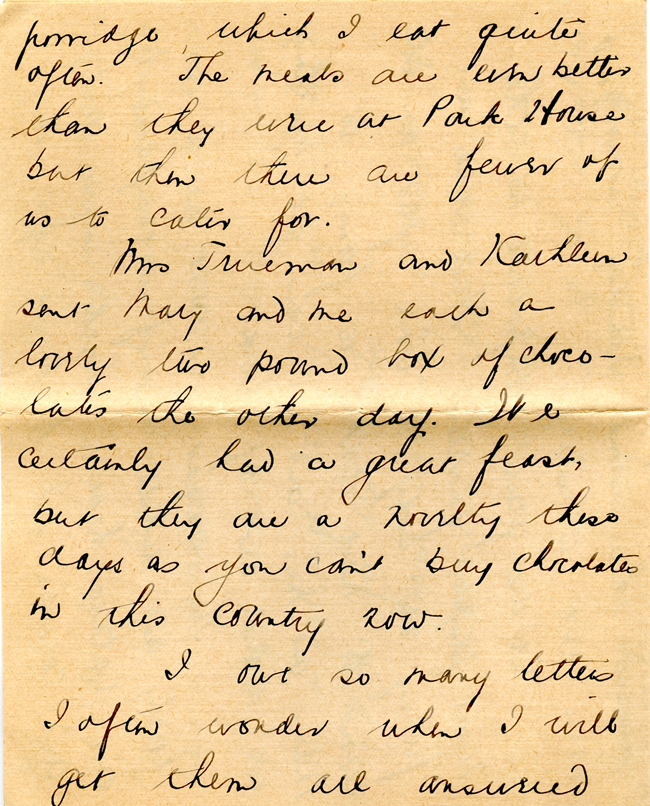 porridge, which I eat quite
often. The meals are even better
than they were at Park House
but then there are fewer of
us to cater for.
Mrs Trueman and Kathleen
sent Mary and me each a
lovely two pound box of choco-
lates the other day. We
certainly had a great feast,
but they are a novelty these
days as you can't buy chocolates
in this country now.
I owe so many letters
I often wonder when I will
get them all answered